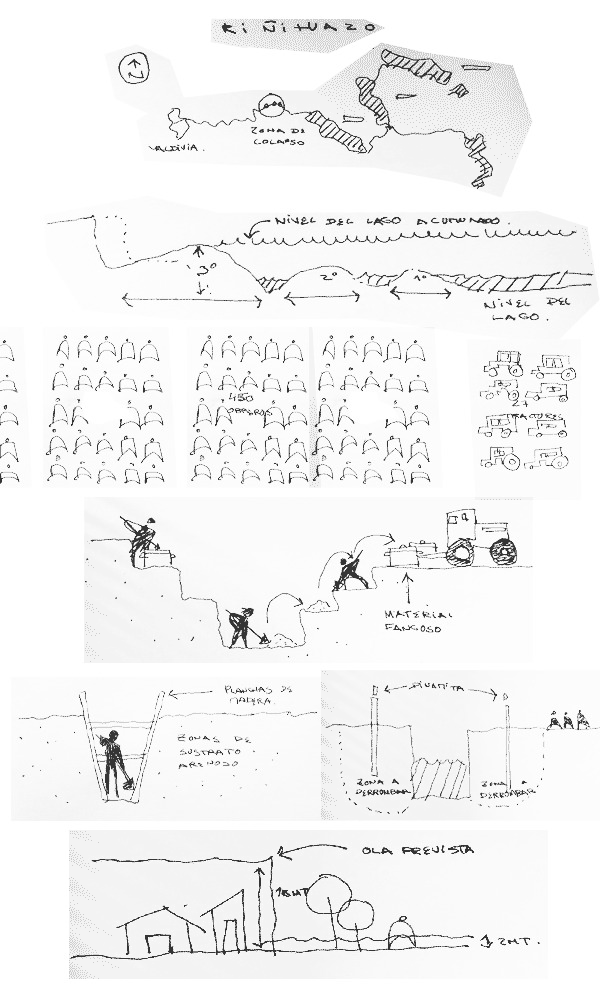 RIÑIHUAZO
VALDIVIA.
ZONA DE
COLAPSO
NIVEL DEL LAGO ACUMUNADO.
3º
2º
1º
NIVEL DEL
LAGO.
450
OBREROS
27
TRACTORES
MATERIAL
FANGOSO
PLANCHAS DE
MADERA.
ZONAS DE
SUSTRATO
ARENOSO
DINAMITA
ZONA A
DERROMBAR
ZONA A
DERROMBAR
OLA PREVISTA
15MT
2MT.